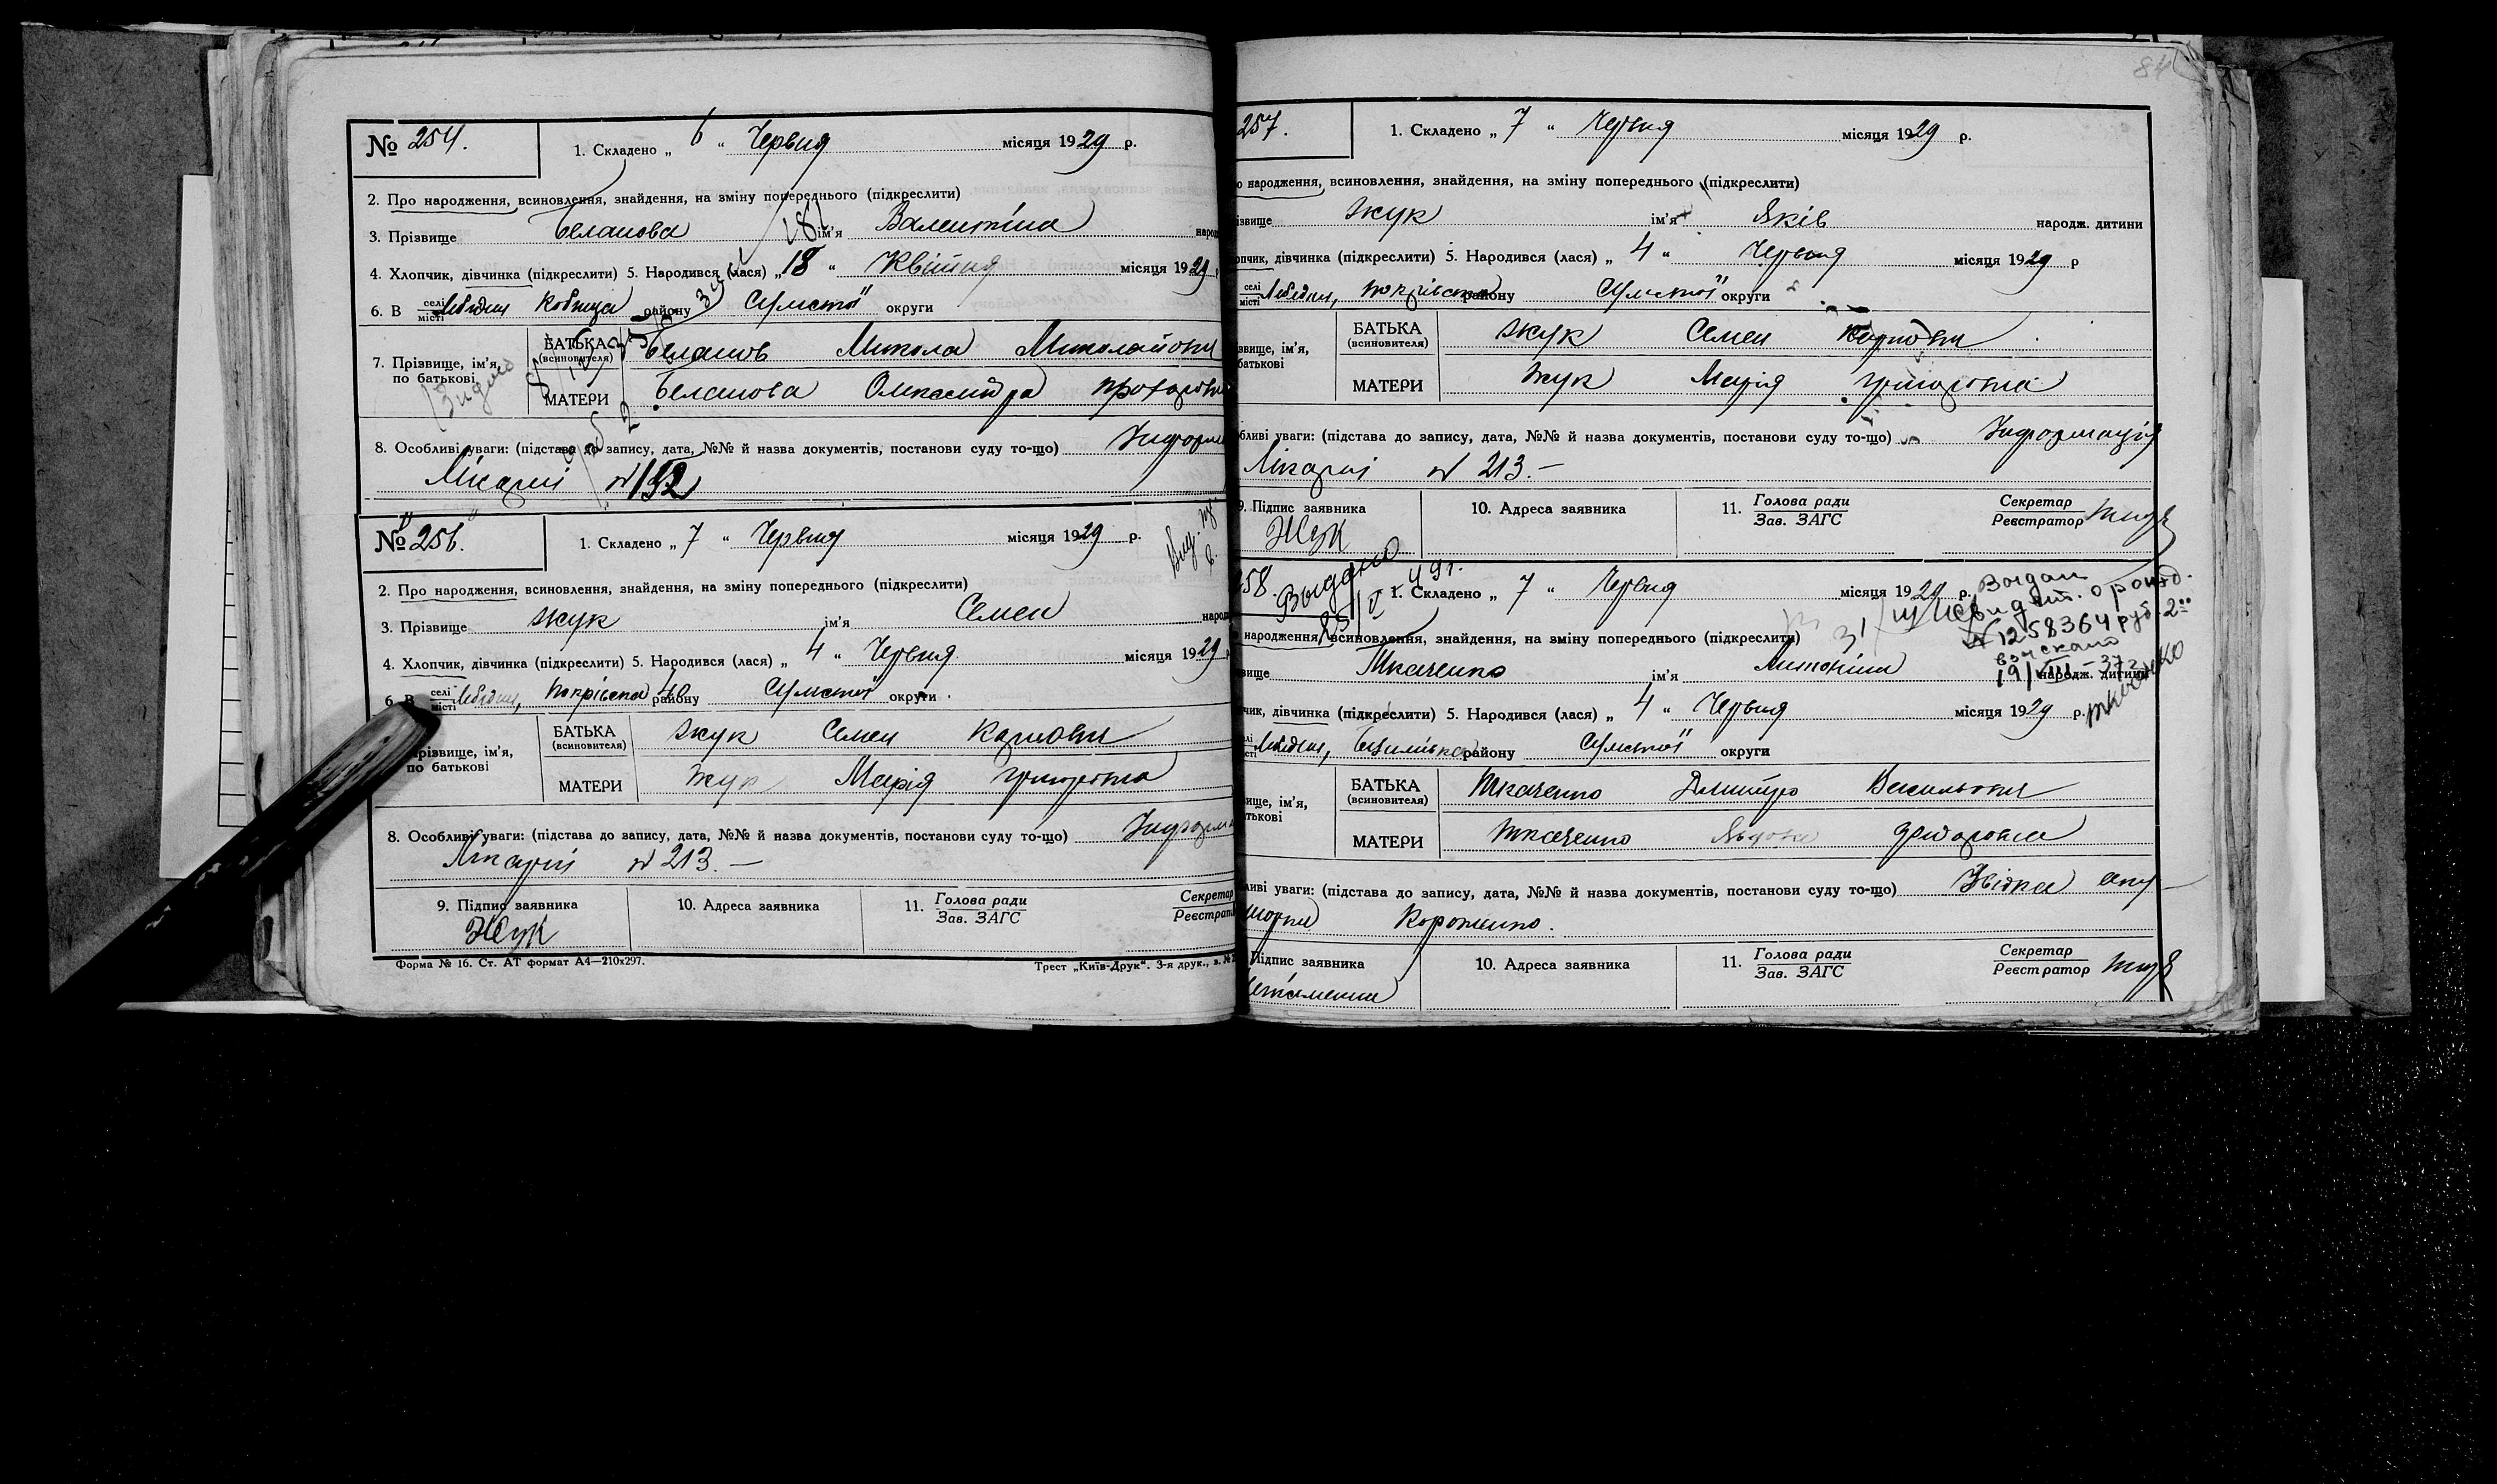 84
№ 254.
1. Складено „ 6 “ Червня місяця 1929 р.
2. Про народження, всиновлення, знайдення, на зміну попереднього (підкреслити)
3. Прізвище Беланова ім'я Валентіна народ
4. Хлопчик, дівчинка (підкреслити) 5. Народився (лася) „ 18 “ Квітня місяця 1929 р
6. В селі місті Лебедин Кобижча району Сумської округи
7. Прізвище, ім'я, по батькові
БАТЬКА (всиновителя) Беланов Микола Миколайович
МАТЕРИ Беланова Олександра Прохоровна
8. Особливі уваги: (підстава до запису, дата, №№ й назва документів, постанови суду то-що) Інформ
Лікарні № 192
№ 256.
1. Складено „ 7 “ Червня місяця 1929 р.
2. Про народження, всиновлення, знайдення, на зміну попереднього (підкреслити)
3. Прізвище Жук ім'я Семен народ
4. Хлопчик, дівчинка (підкреслити) 5. Народився (лася) „ 4 “ Червня місяця 1929 р
6. В селі місті Лебедин, Покрівська 40 району Сумської округи
Прізвище, ім'я, по батькові
БАТЬКА (всиновителя) Жук Семен Карпович
МАТЕРИ Жук Марія Григоровна
8. Особливі уваги: (підстава до запису, дата, №№ й назва документів, постанови суду то-що) Інформа
Лікарні № 213.—
9. Підпис заявника 10. Адреса заявника 11. Голова ради Зав. ЗАГС Секретар Реєстрат
Жук
Форма № 16. Ст. АТ формат А4—210х297.
Трест „Київ-Друк“. 3-я друк., з. №
257.
1. Складено „ 7 “ Червня місяця 1929 р.
о народження, всиновлення, знайдення, на зміну попереднього (підкреслити)
ізвище Жук ім'я Яків народж. дитини
опчик, дівчинка (підкреслити) 5. Народився (лася) „ 4 “ Червня місяця 1929 р
селі місті Лебедин, Покрівська району Сумської округи
звище, ім'я, батькові
БАТЬКА (всиновителя) Жук Семен Карпович
МАТЕРИ Жук Марія Григоровна
бливі уваги: (підстава до запису, дата, №№ й назва документів, постанови суду то-що) Інформація
Лікарні № 213.—
9. Підпис заявника 10. Адреса заявника 11. Голова ради Зав. ЗАГС Секретар Реєстратор
Жук
258.
Выдано
49 г.
1. Складено „ 7 “ Червня місяця 1929 р.
народження, всиновлення, знайдення, на зміну попереднього (підкреслити)
№ 1258364 руб. 2
взыскано
19/VIII—37 г
вище Ткаченко ім'я Антоніна народж. дитини
чик, дівчинка (підкреслити) 5. Народився (лася) „ 4 “ Червня місяця 1929 р.
Лебедин, району Сумської округи
вище, ім'я, тькові
БАТЬКА (всиновителя) Ткаченко Дмитро Васильович
МАТЕРИ Ткаченко Федоровна
ливі уваги: (підстава до запису, дата, №№ й назва документів, постанови суду то-що) Звідка аку—
шорки Короженко.
Підпис заявника 10. Адреса заявника 11. Голова ради Зав. ЗАГС Секретар Реєстратор